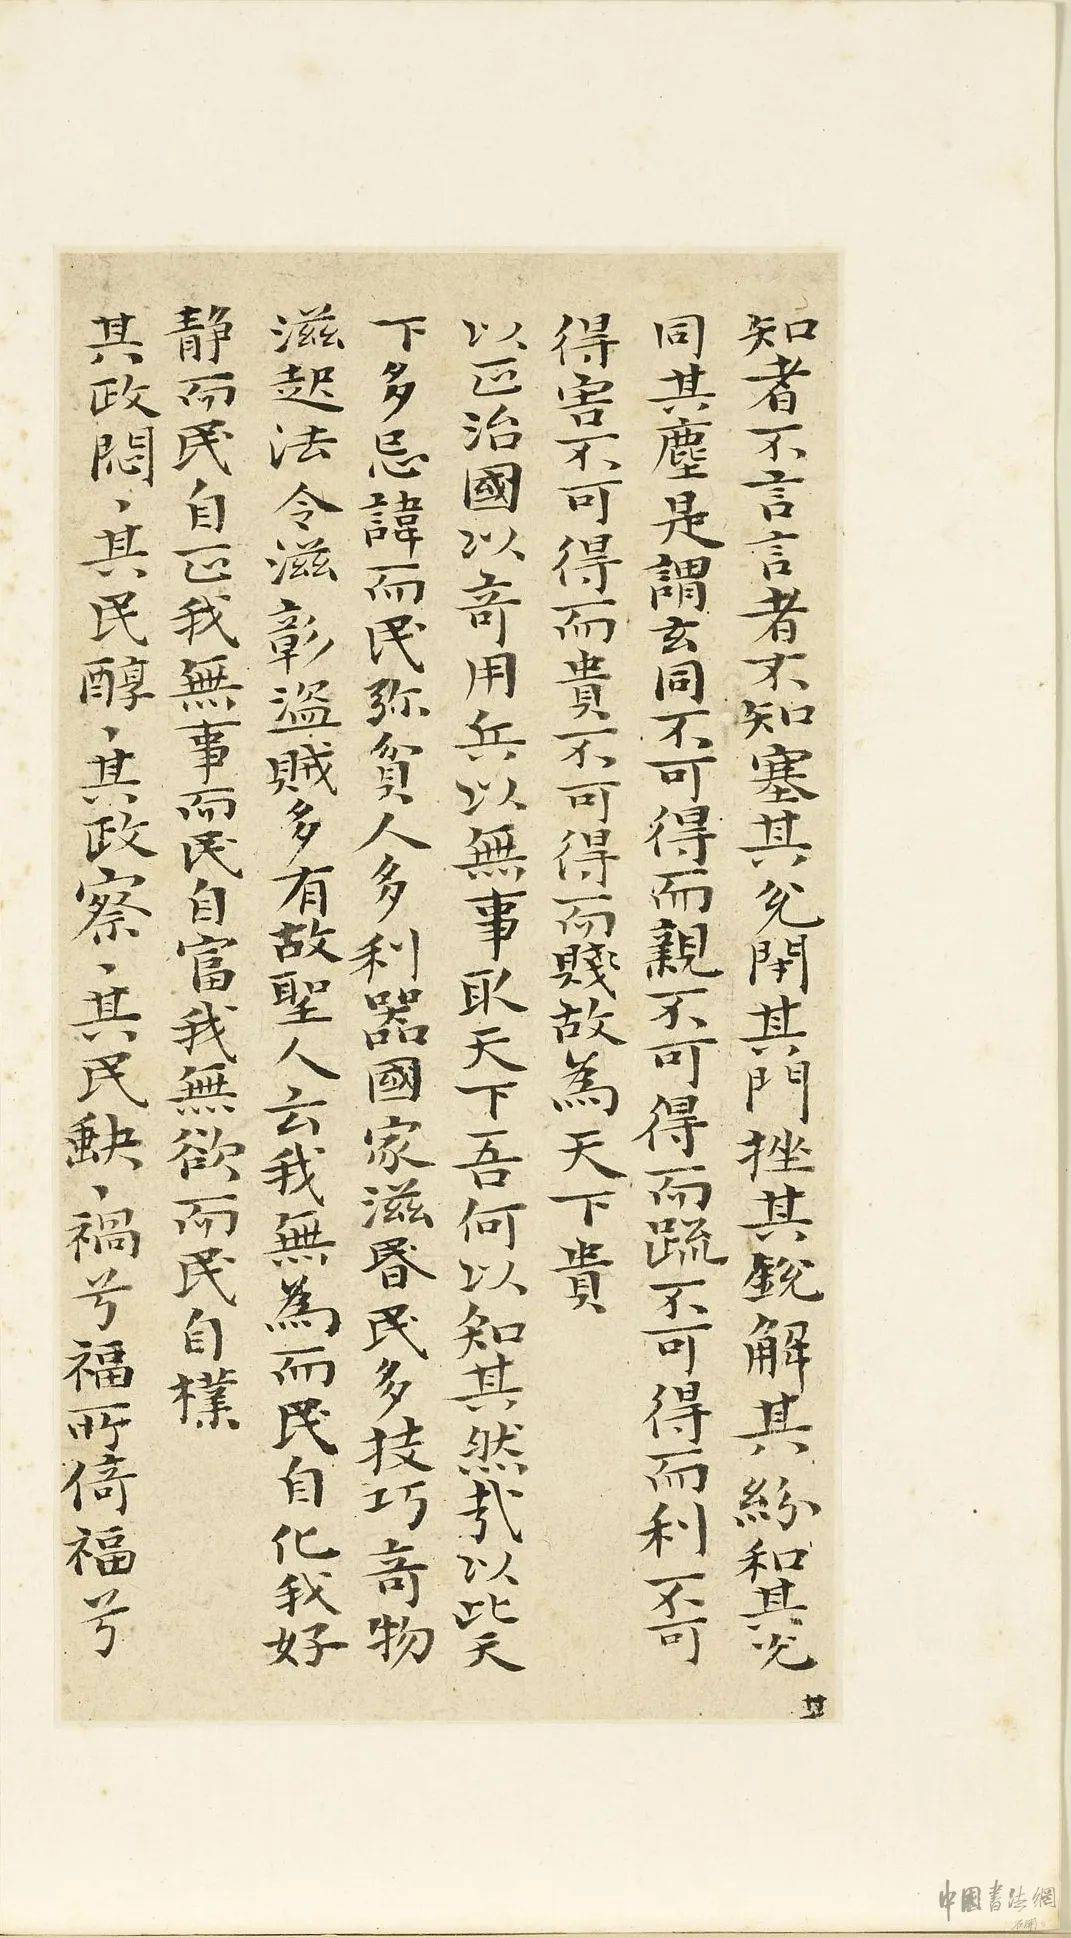 知者不言言者不知塞其兊閇其門挫其銳解其紛和其光
同其塵是謂玄同不可得而親不可得而疏不可得而利不可
得害不可得而貴不可得而賤故為天下貴
以正治國以竒用兵以無事取天下吾何以知其然哉以此天
下多忌諱而民弥貧人多利器國家滋昬民多技巧竒物
滋起法令滋彰盜賊多有故聖人云我無為而民自化我好
靜而民自正我無事而民自富我無欲而民自樸
其政悶、其民醇、其政察、其民缺、禍兮福所倚福兮
廿
中國書法網